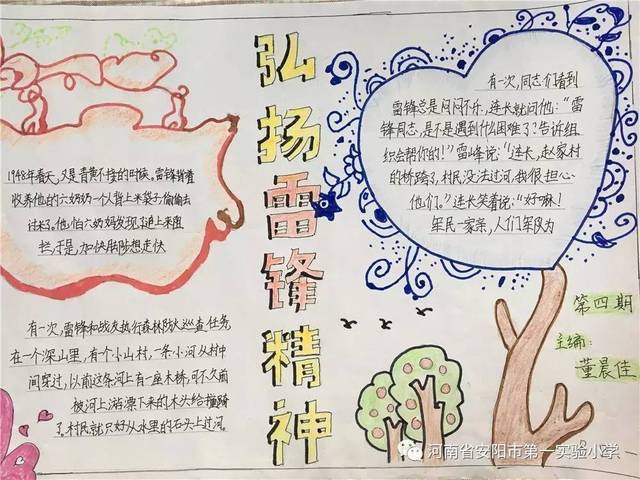 弘扬雷锋精神
1948年春天，又是青黄不接的时候，雷锋背着
收养他的六奶奶一个人背上米袋子偷偷去
讨米了。他怕六奶妈发现，追上来阻
拦，于是，加快脚陟想走快
有一次，雷锋和战友执行森林防火巡查任务，
在一个深山里，有个小山村，一条小河从村中
间穿过，以前这条河上有一座木桥，可不久前
被河上游漂下来的木头给撞跨
了。村民就只好从水里的石头上过河。
有一次，同志们看到
雷锋总是闷闷不乐，连长就问他：“雷
锋同志，是不是遇到什么困难了？告诉组
织会帮你的！”雷峰说：“连长，赵家村
的桥跨了，村民没法过河，我很担心
他们。”连长笑着说：“好嘛！
军民一家亲，人们军队为
第四期
主编：
董晨佳
河南省安阳市第一实验小学